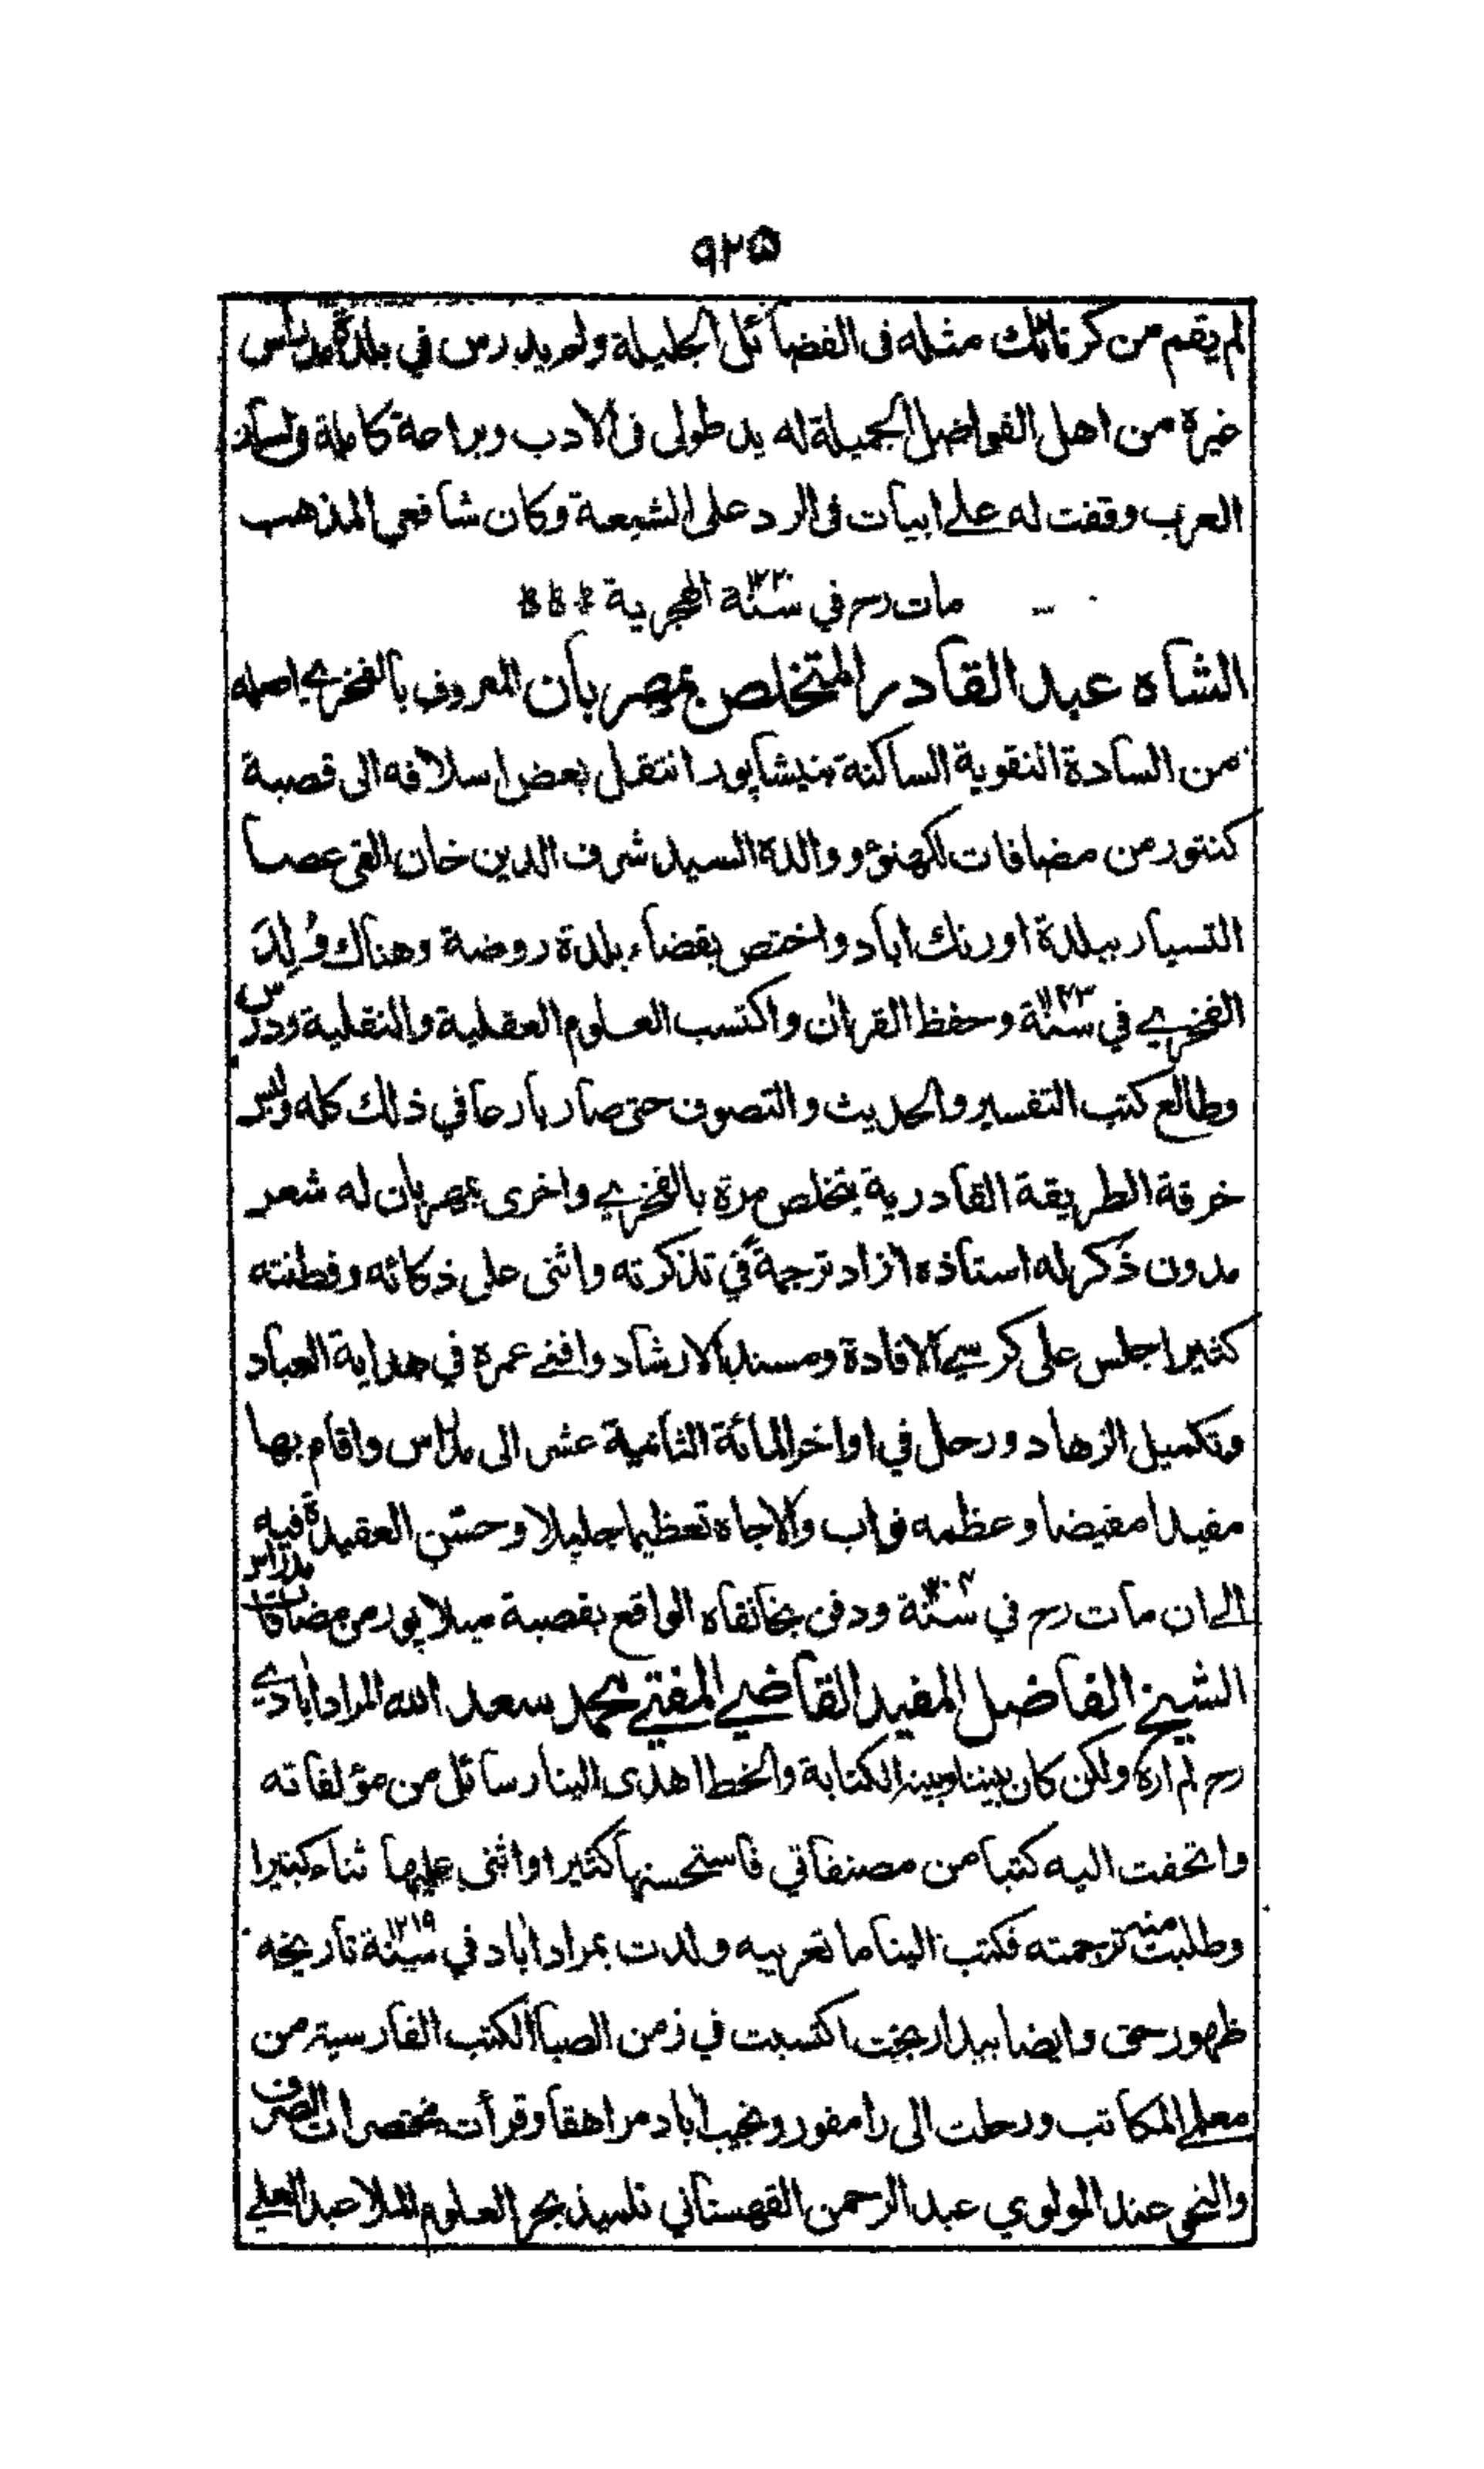 ٩٢٥
لم يقم من كرناتك مثله فى الفضائل الجليلة ولم يدرس في بلدة مدراس
غيره من اهل الفواضل الجميلة له يد طولى فى الادب وبراعة كاملة فى لسان
العرب وقفت له على ابيات فى الرد على الشيعة وكان شافعي المذهب
مات رح في سنة ١٢٢٠ الهجرية
الشاه عبد القادر المتخلص بمهربان المعروف بالفخري اصله
من السادة النقوية الساكنة بنيشاپور انتقل بعض اسلافه الى قصبة
كنتور من مضافات لكهنؤ ووالده السيد شرف الدين خان القى عصا
التسيار ببلدة اورنك اباد واختص بقضاء بلدة روضة وهناك وُلِدَ
الفخري في سنة ١١٤٣ وحفظ القران واكتسب العلوم العقلية والنقلية ودرس
وطالع كتب التفسير والحديث والتصوف حتى صار بارعا في ذلك كله ولبس
خرقة الطريقة القادرية يتخلص مرة بالفخري واخرى بمهربان له شعر
مدون ذكر له استاذه ازاد ترجمةً في تذكرته واثنى على ذكائه وفطنته
كثيرا جلس على كرسي الافادة ومسند الارشاد وافنى عمره في هداية العباد
وتكميل الزهاد ورحل في اواخر المائة الثانية عشر الى مدراس واقام بها
مفيدا مفيضا وعظمه نواب والاجاه تعظيما جليلا وحسّن العقيدة فيه
الى ان مات رح في سنة ١٢٠٤ ودفن بخانقاه الواقع بقصبة ميلاپور من مضافات مدراس
الشيخ الفاضل المفيد القاضي المفتي محمد سعد الله المرادابادي
رح لم اره ولكن كان بيننا وبينه الكتابة والخط اهدى الينا رسائل من مؤلفاته
واتحفت اليه كتبا من مصنفاتي فاستحسنها كثيرا واثنى عليها ثناء كبيرا
وطلبت منه ترجمته فكتب الينا ما تعريبه ولدت بمراداباد في سنة ١٢١٩ تاريخه
ظهور حق وايضا بيدار بخت اكتسبت في زمن الصبا الكتب الفارسية من
معلمي المكاتب ورحلت الى رامفور ونجيب اباد مراهقا وقرأت مختصرات الصرف
والنحو عند المولوي عبد الرحمن القهستاني تلميذ بحر العلوم الملا عبد العلي